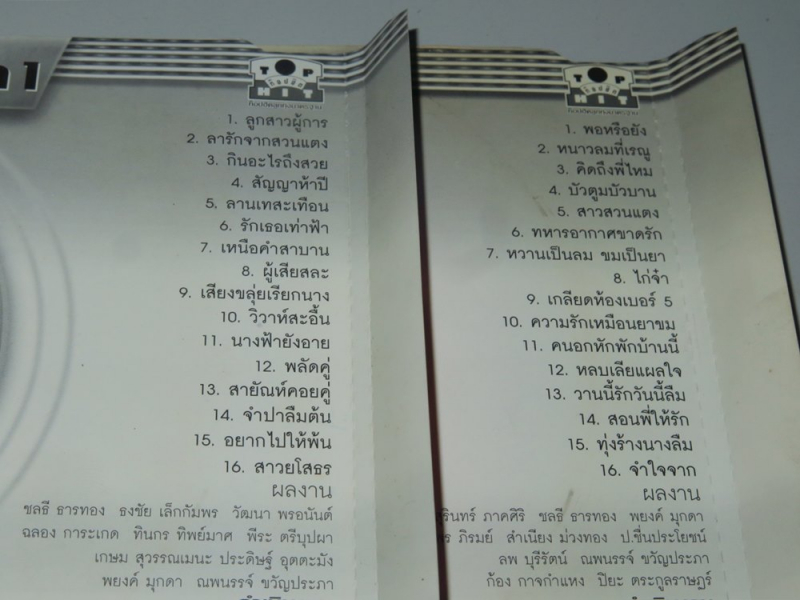 TOP
HIT
1. ลูกสาวผู้การ
2. ลารักจากสวนแตง
3. กินอะไรถึงสวย
4. สัญญาห้าปี
5. ลานเทสะเทือน
6. รักเธอเท่าฟ้า
7. เหนือคำสาบาน
8. ผู้เสียสละ
9. เสียงขลุ่ยเรียกนาง
10. วิวาห์สะอื้น
11. นางฟ้ายังอาย
12. พลัดคู่
13. สายัณห์คอยคู่
14. จำปาลืมต้น
15. อยากไปให้พ้น
16. สาวยโสธร
ผลงาน
ชลธี ธารทอง ธงชัย เล็กกัมพร วัฒนา พรอนันต์
ฉลอง การะเกด ทินกร ทิพย์มาศ พีระ ตรีบุปผา
เกษม สุวรรณเมนะ ประดิษฐ์ อุตตะมัง
พยงค์ มุกดา ณพนรรจ์ ขวัญประภา
TOP
HIT
1. พอหรือยัง
2. หนาวลมที่เรณู
3. คิดถึงพี่ไหม
4. บัวตูมบัวบาน
5. สาวสวนแตง
6. ทหารอากาศขาดรัก
7. หวานเป็นลม ขมเป็นยา
8. ไก่จ๋า
9. เกลียดห้องเบอร์ 5
10. ความรักเหมือนยาขม
11. คนอกหักพักบ้านนี้
12. หลบเลียแผลใจ
13. วานนี้รักวันนี้ลืม
14. สอนพี่ให้รัก
15. ทุ่งร้างนางลืม
16. จำใจจาก
ผลงาน
รินทร์ ภาคศิริ ชลธี ธารทอง พยงค์ มุกดา
ร ภิรมย์ สำเนียง ม่วงทอง ป.ชื่นประโยชน์
ลพ บุรีรัตน์ ณพนรรจ์ ขวัญประภา
ก้อง กาจกำแหง ปิยะ ตระกูลราษฎร์